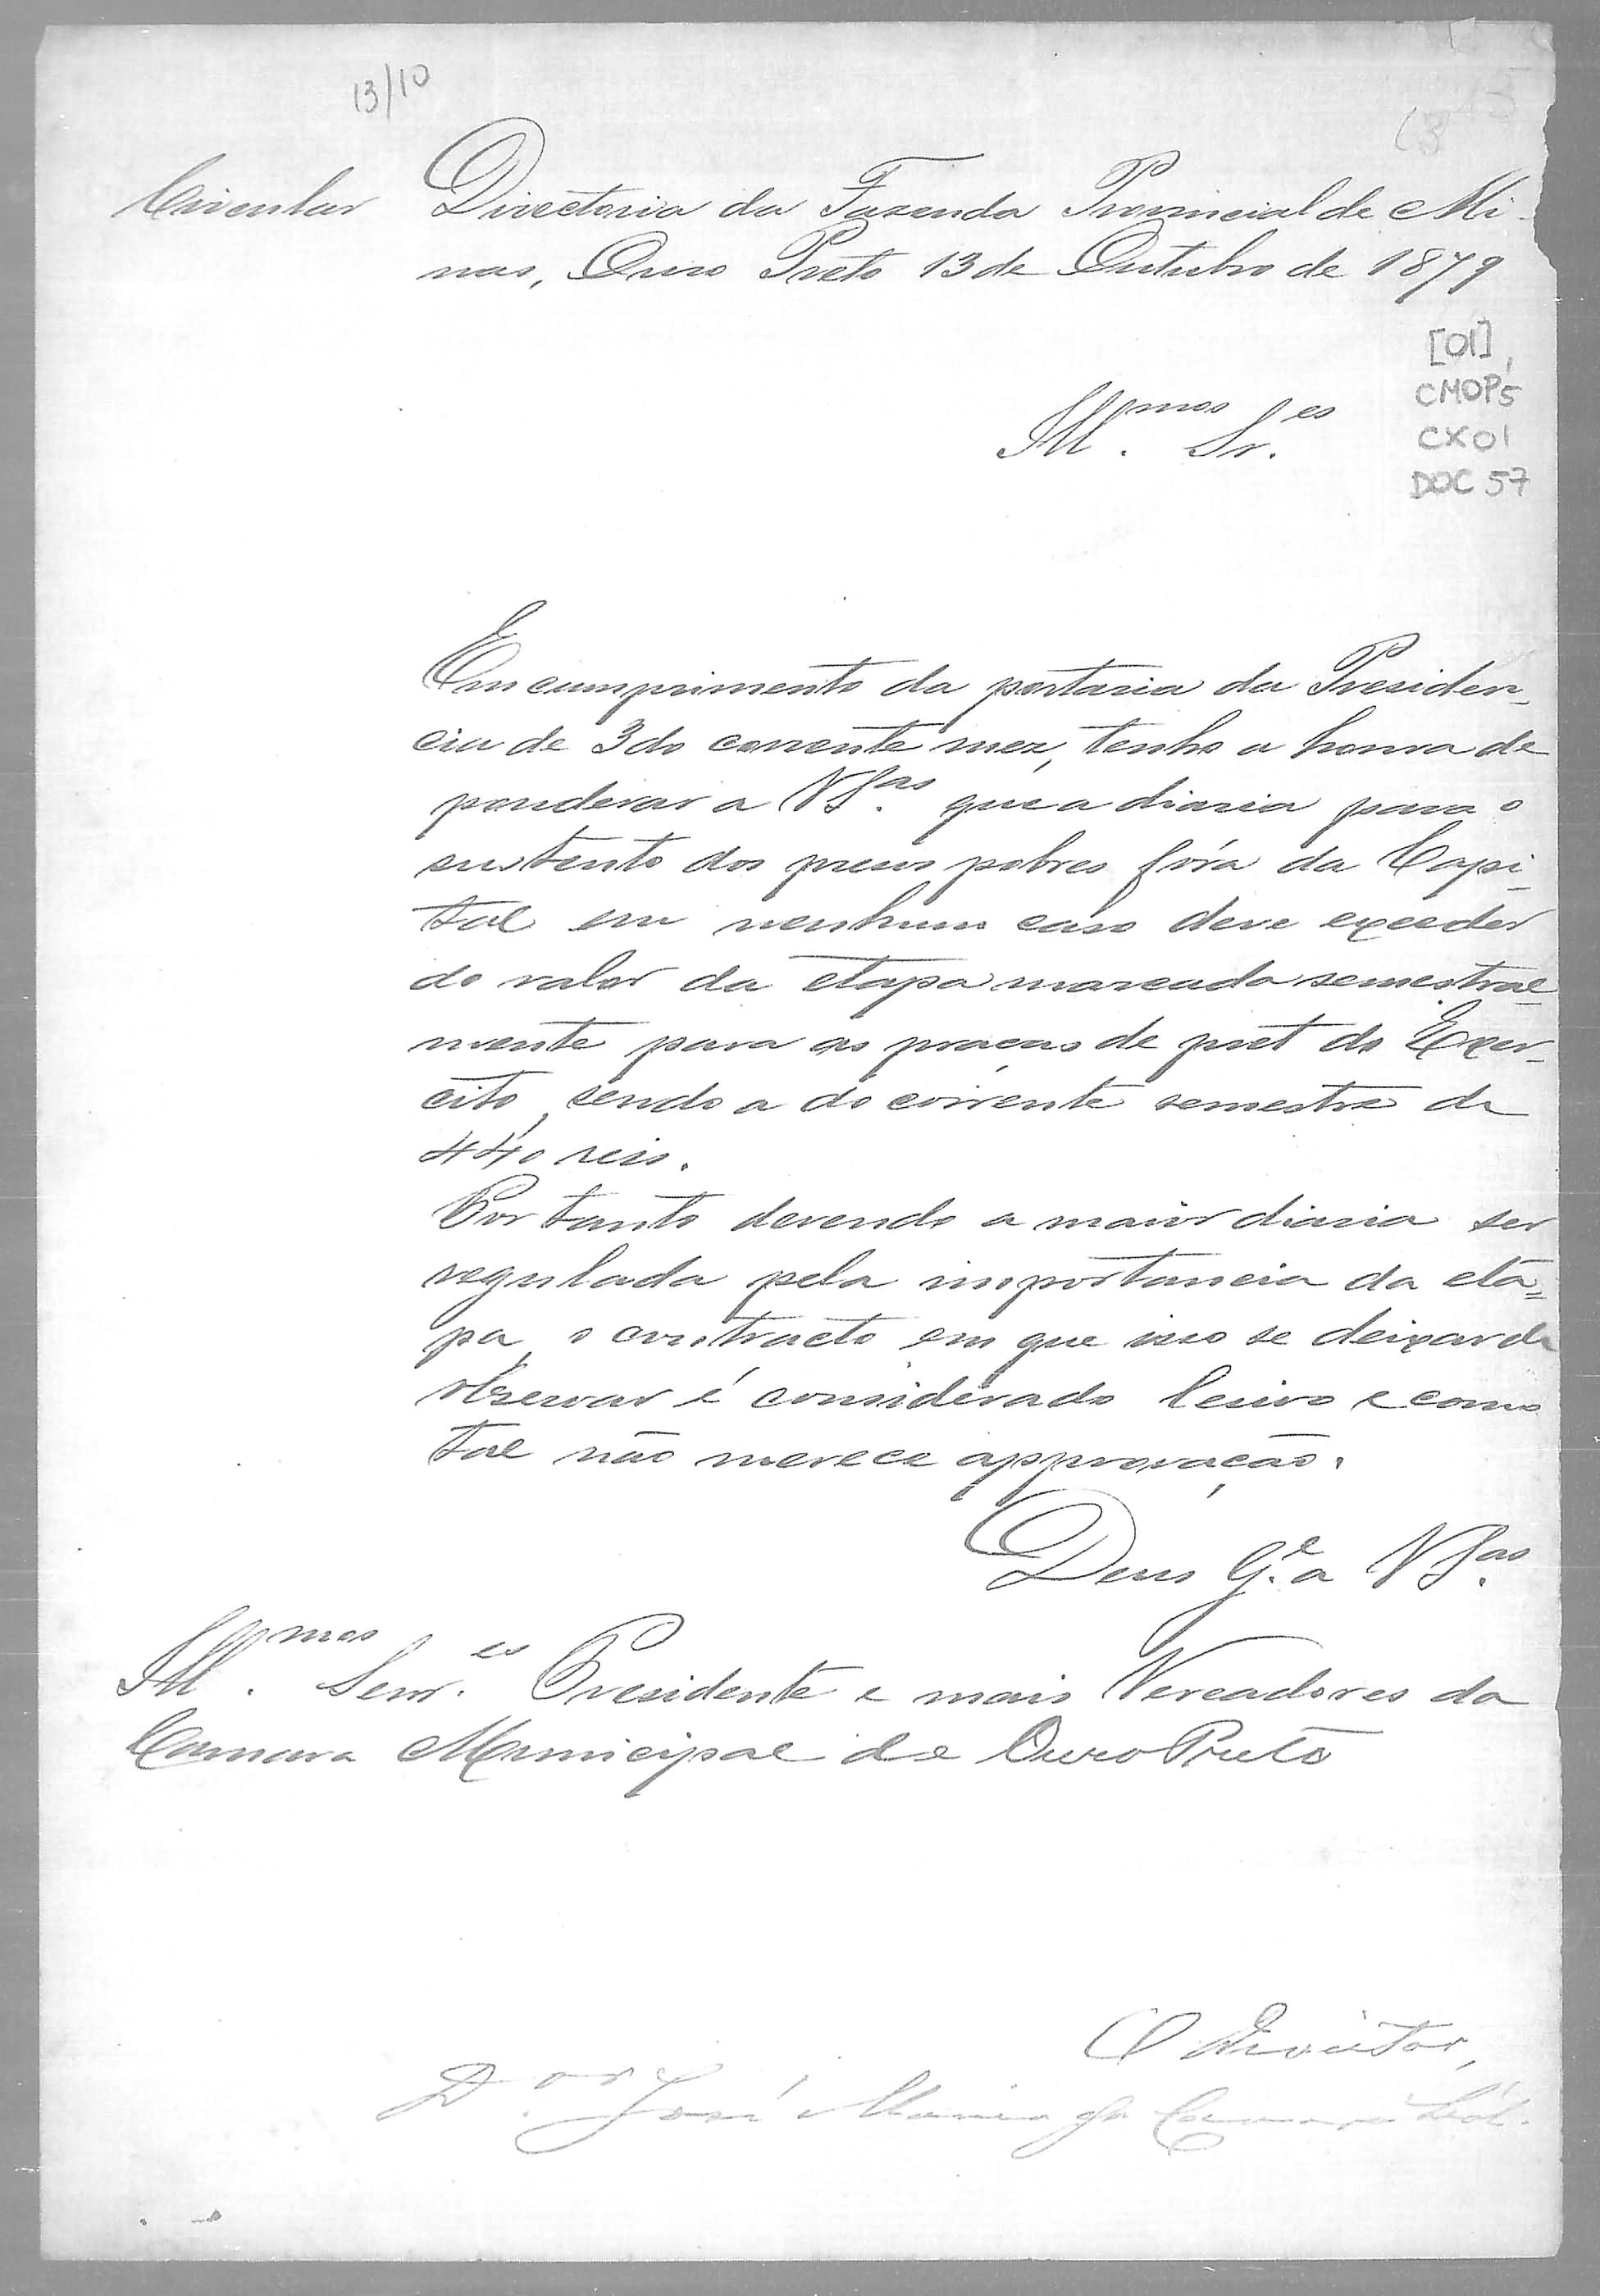 13/10
Circular Directoria da Fazenda Provincial de Mi-
nas, Ouro Preto 13 de Outubro de 1879
[01]
CMOP5
CX01
DOC 57
Ill.mos Sr.es
Em cumprimento da portaria da Presiden-
cia de 3 do corrente mez, tenho a honra de
ponderar a VS.as que a diaria para o
sustento dos presos pobres fóra da Capi-
tal em nenhum caso deve exceder
do valor da etapa marcada semestral-
mente para as praças de pret do Exer-
cito, sendo a do corrente semestre de
440 reis.
Por tanto devendo a maior diaria ser
regulada pela importancia da eta=
pa, o contracto em que isso se deixar de
observar é considerado lesivo e como
tal não merece approvação.
Deus G.e a VS.as
Ill.mos Senr.es Presidente e mais Vereadores da
Camara Municipal de Ouro Preto
O Director,
D.or José Maria da Camara Leal.